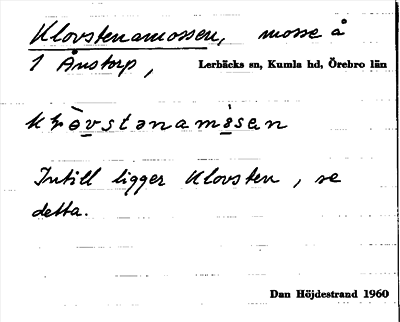 Klovstenamossen, mosse å
1 Ånstorp, Lerbäcks sn, Kumla hd, Örebro län
Intill ligger Klovsten, se
detta.
Dan Höjdestrand 1960